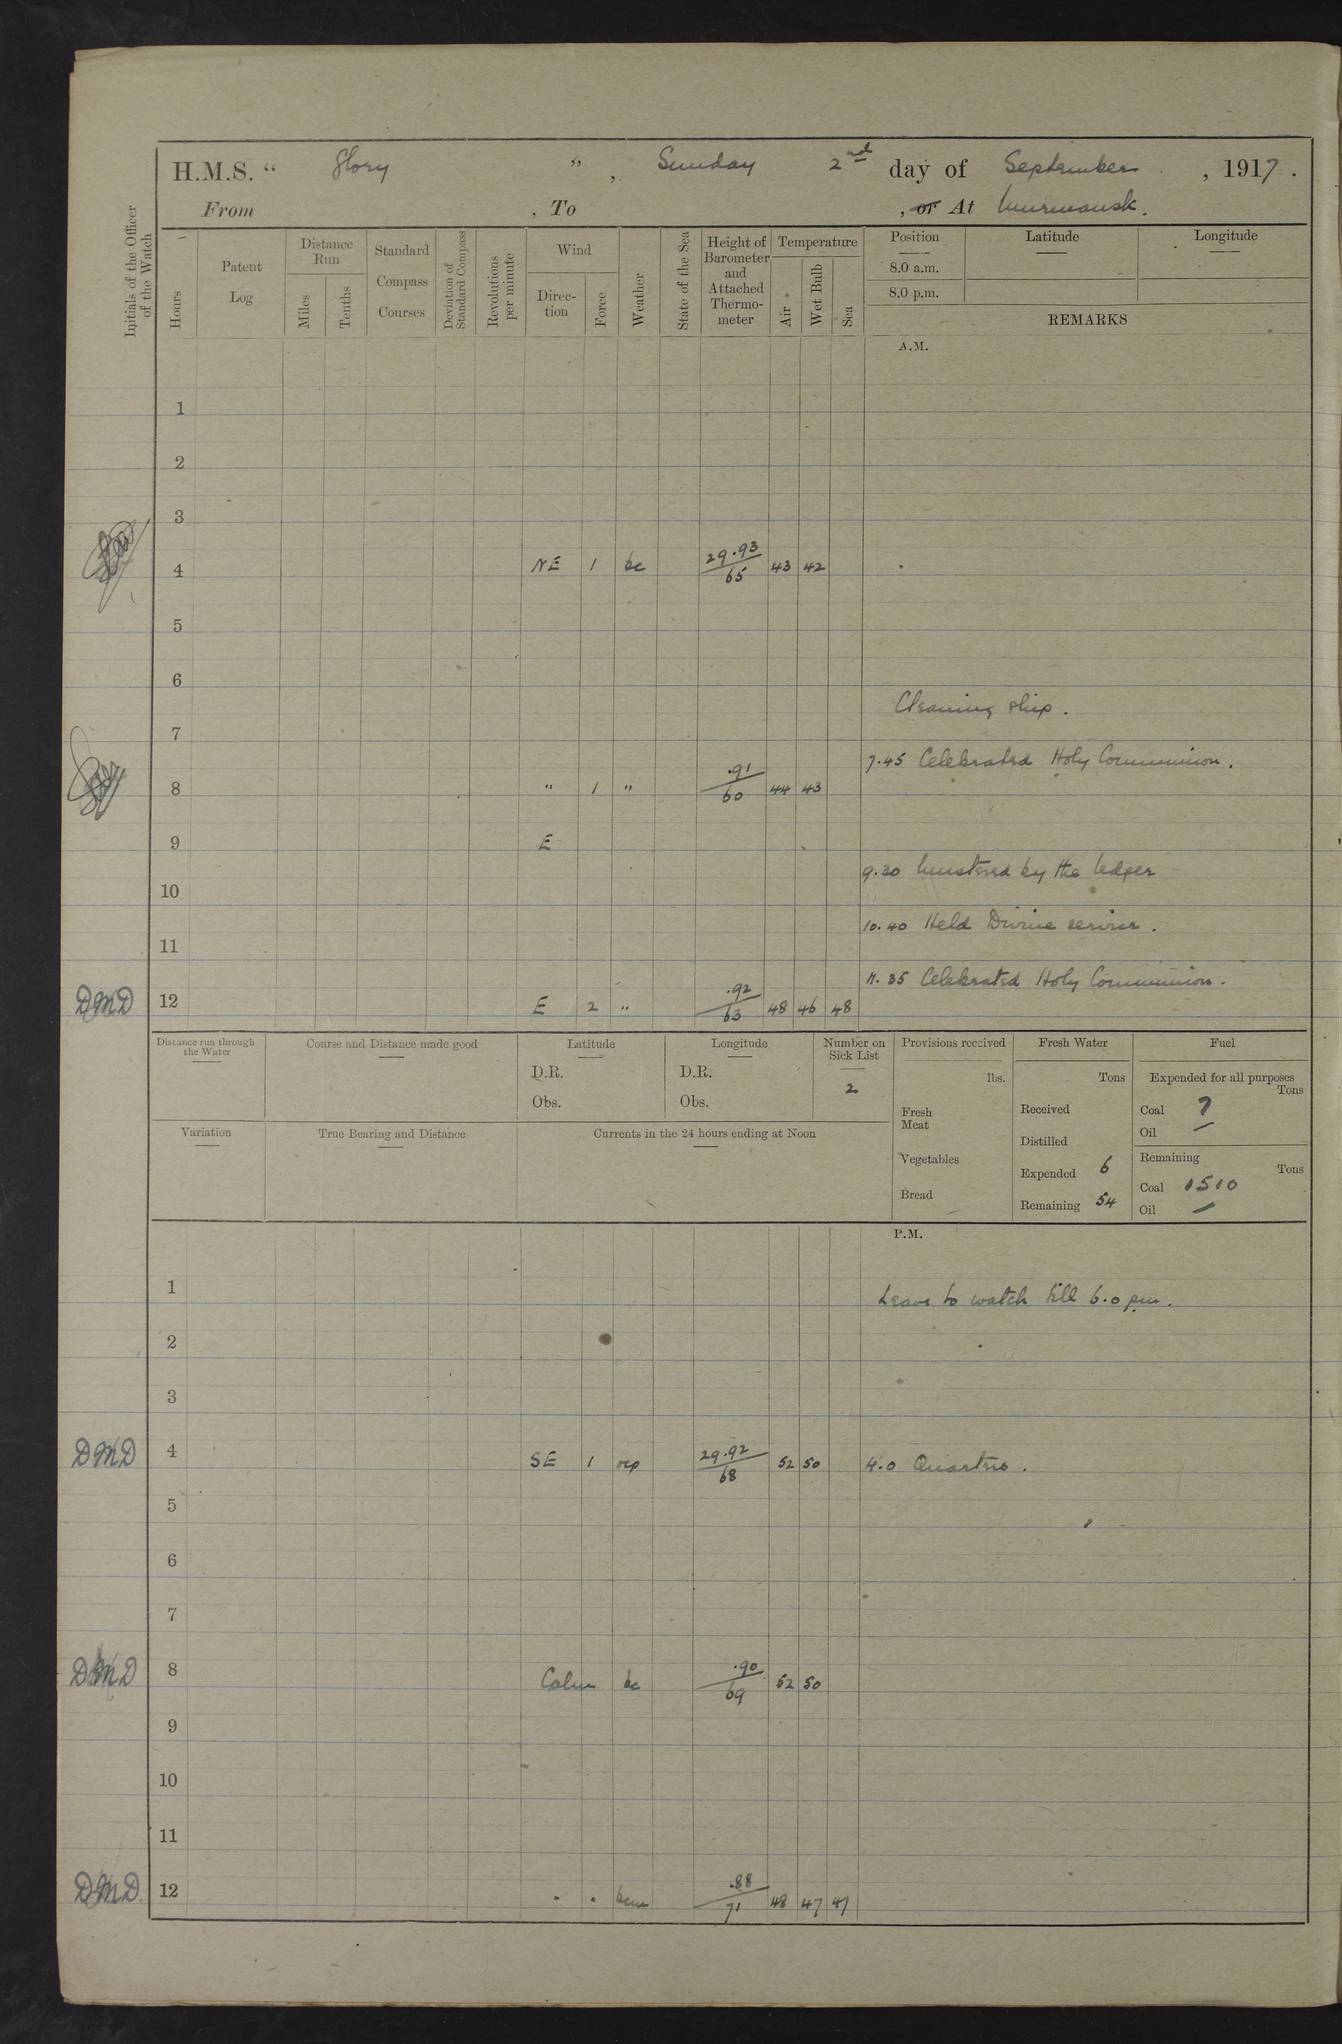 H.M.S. “ Glory ” , Sunday 2nd day of September , 1917 .
From , To , or At Murmansk.
Initials of the Officer of the Watch
Hours
Patent Log
Distance Run
Miles
Tenths
Standard Compass Courses
Deviation of Standard Compass
Revolutions per minute
Wind
Direction
Force
Weather
State of the Sea
Height of Barometer and Attached Thermometer
Temperature
Air
Wet Bulb
Sea
Position
8.0 a.m.
8.0 p.m.
Latitude
Longitude
REMARKS
A.M.
1
2
3
4 NE 1 bc 29.93/65 43 42
5
6
Cleaning ship.
7
7.45 Celebrated Holy Communion.
8 " 1 " .91/60 44 43
9 E
9.30 Mustered by the ledger
10
10.40 Held Divine service.
11
11.35 Celebrated Holy Communion.
DMD 12 E 2 " .92/63 48 46 48
Distance run through the Water
Course and Distance made good
Latitude
D.R.
Obs.
Longitude
D.R.
Obs.
Number on Sick List
2
Provisions received
lbs.
Fresh Meat
Vegetables
Bread
Fresh Water
Tons
Received
Distilled
Expended 6
Remaining 54
Fuel
Expended for all purposes
Tons
Coal 7
Oil —
Remaining
Tons
Coal 1510
Oil —
Variation
True Bearing and Distance
Currents in the 24 hours ending at Noon
P.M.
1
Leave to watch till 6.0 pm.
2
3
DMD 4 SE 1 ocp 29.92/68 52 50 4.0 Quarters.
5
6
7
DMD 8 Calm bc .90/69 52 50
9
10
11
DMD 12 " " bcm .88/71 48 47 47